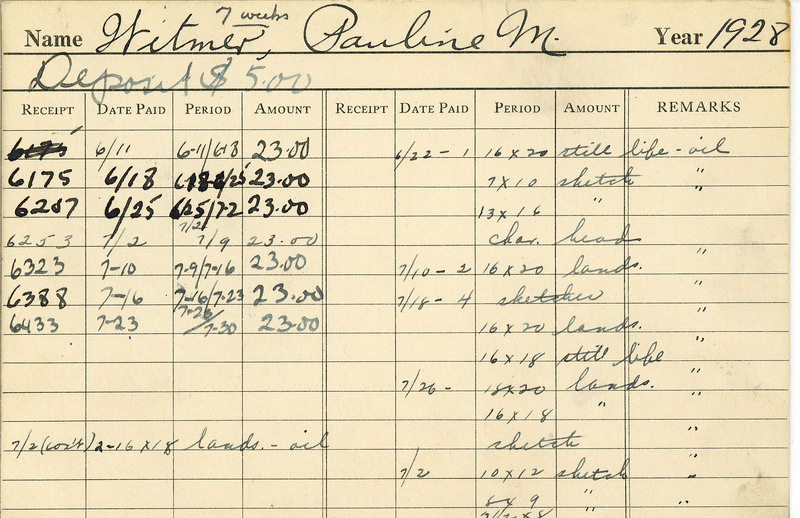 7 weeks
Name Witmer, Pauline M. Year 1928
Deposit $ 5.00
RECEIPT DATE PAID PERIOD AMOUNT RECEIPT DATE PAID PERIOD AMOUNT REMARKS
6/11 6-11/6-18 23.00 6/22 - 1 16 x 20 still life - oil
6175 6/18 6-18 6/25 23.00 7 x 10 sketch "
6207 6/25 6/25/7-2 23.00 13 x 16 "
6253 7/2 7/2/7/9 23.00 char. head
6323 7-10 7-9/7-16 23.00 7/10 - 2 16 x 20 lands. "
6388 7-16 7-16/7-23 23.00 7/18 - 4 sketches "
6433 7-23 /7-30 23.00 16 x 20 lands. "
16 x 18 still life "
7/26 - 18 x 20 lands. "
16 x 18 " "
7/2 (con't) 2-16 x 18 lands. - oil sketch "
7/2 10 x 12 sketch "
8 x 9 " "